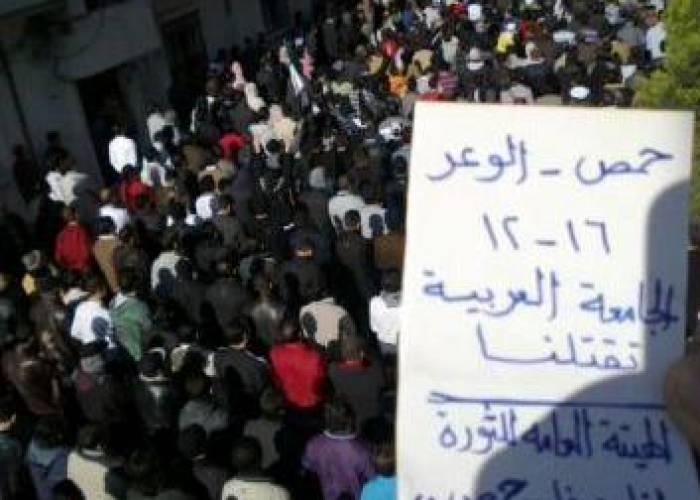 حمص - الوعر
١٦-١٢
الجامعة العربية
تقتلنا
الهيئة العامة للثورة